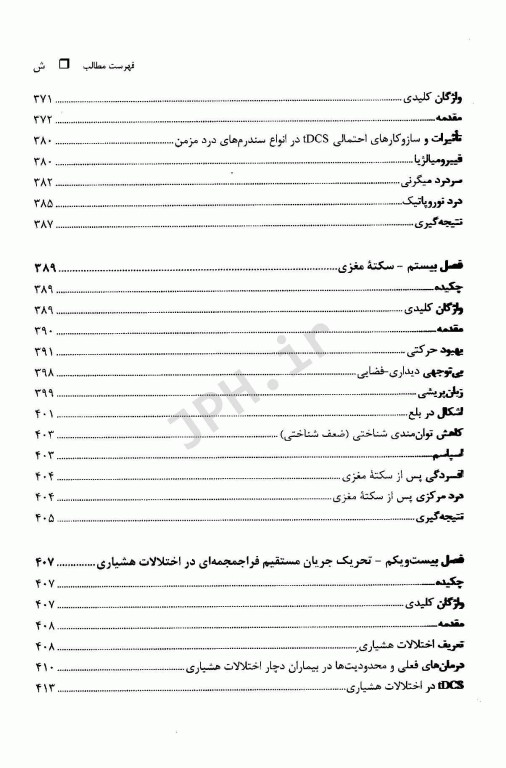 فهرست مطالب ❒ ش
واژگان کلیدی ... ۳۷۱
مقدمه ... ۳۷۲
تأثیرات و سازوکارهای احتمالی tDCS در انواع سندرم‌های درد مزمن ... ۳۸۰
فیبرومیالژیا ... ۳۸۰
سردرد میگرنی ... ۳۸۲
درد نوروپاتیک ... ۳۸۵
نتیجه‌گیری ... ۳۸۷
فصل بیستم - سکتهٔ مغزی ... ۳۸۹
چکیده ... ۳۸۹
واژگان کلیدی ... ۳۸۹
مقدمه ... ۳۹۰
بهبود حرکتی ... ۳۹۱
بی‌توجهی دیداری-فضایی ... ۳۹۸
زبان‌پریشی ... ۳۹۹
اشکال در بلع ... ۴۰۱
کاهش توان‌مندی شناختی (ضعف شناختی) ... ۴۰۳
اسپاسم ... ۴۰۳
افسردگی پس از سکتهٔ مغزی ... ۴۰۴
درد مرکزی پس از سکتهٔ مغزی ... ۴۰۴
نتیجه‌گیری ... ۴۰۵
فصل بیست‌ویکم - تحریک جریان مستقیم فراجمجمه‌ای در اختلالات هشیاری ... ۴۰۷
چکیده ... ۴۰۷
واژگان کلیدی ... ۴۰۷
مقدمه ... ۴۰۸
تعریف اختلالات هشیاری ... ۴۰۸
درمان‌های فعلی و محدودیت‌ها در بیماران دچار اختلالات هشیاری ... ۴۱۰
tDCS در اختلالات هشیاری ... ۴۱۳
JPH.ir